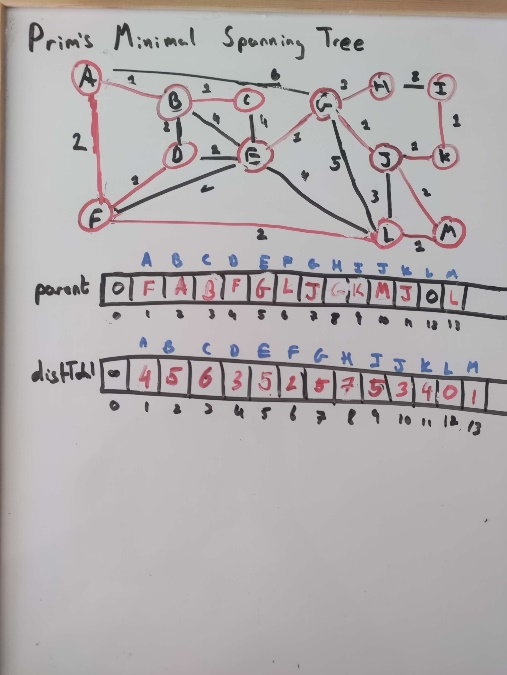 Prim's Minimal Spanning Tree
A 1 B 1 C 6 G 2 H 2 I
2 2 4 4 1 1 5 1 1
D 2 E J K
F 1 4 3 2
2 L 1 M
A B C D E F G H I J K L M
parent 0 F A B F G L J G K M J 0 L
0 1 2 3 4 5 6 7 8 9 10 11 12 13
A B C D E F G H I J K L M
distTo[] ∞ 4 5 6 3 5 2 5 7 5 3 4 0 1
0 1 2 3 4 5 6 7 8 9 10 11 12 13